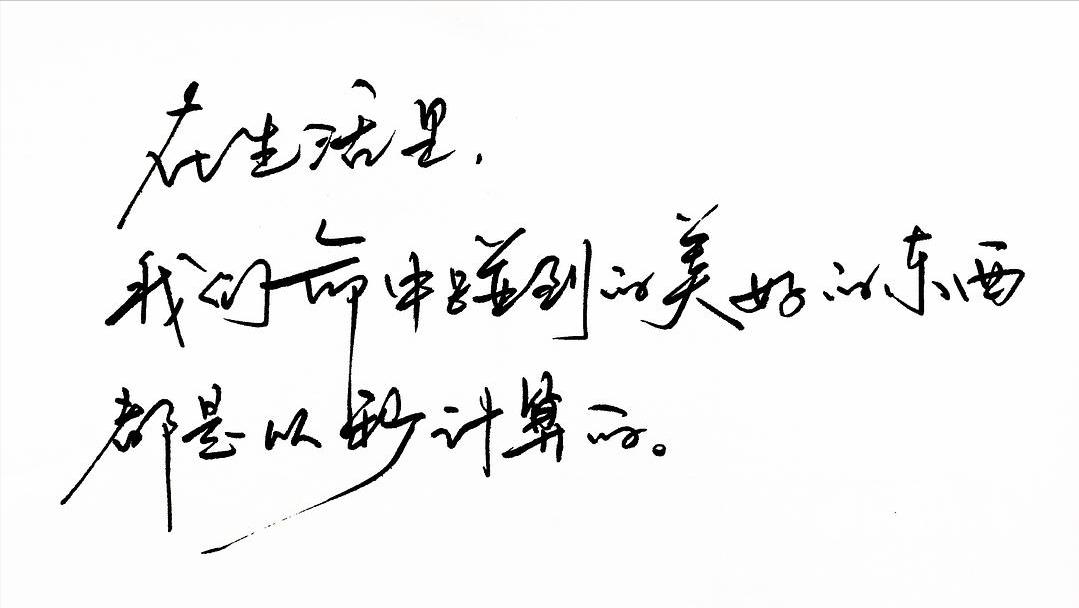 在生活里，
我们命中碰到的美好的东西
都是以秒计算的。